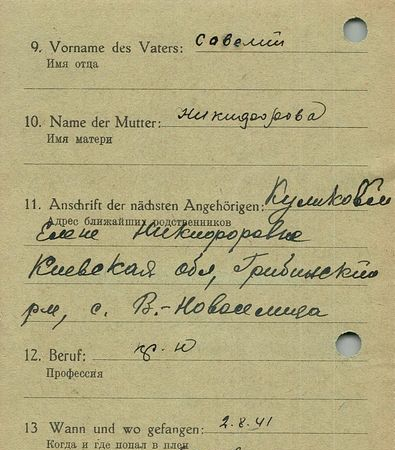 9. Vorname des Vaters: Савелий
Имя отца
10. Name der Mutter: Никифорова
Имя матери
11. Anschrift der nächsten Angehörigen: Куликовой
Адрес ближайших родственников
Елене Никифоровне
Киевская обл, Грибинский
рн, с. В.-Новоселица
12. Beruf:
Профессия
13 Wann und wo gefangen: 2.8.41
Когда и где попал в плен